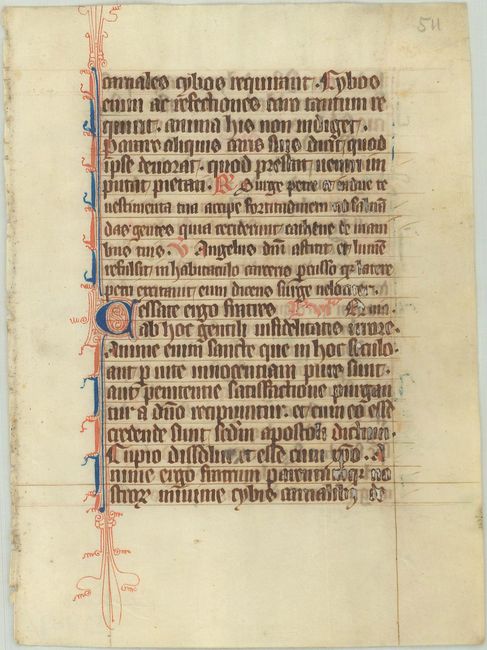 511
carnales cybos requirant. Cybos
enim ac refectiones caro tantum re
quirit. anima his non indiget.
Parare aliquis caris suis dicit quod
ipse deuorat. quod prestat uentri im
putat pietati. R Surge petre et indue te
uestimenta tua accipe fortitudinem ad saluan
das gentes quia ceciderunt cathene de mani
bus tuis. V Angelus dni astitit et lumen
refulsit in habitaculo carceris percusso qz latere
petri excitauit eum dicens surge uelociter.
Cessate ergo fratres
ab hoc gentili infidelitatis errore.
Anime enim sancte que in hoc seculo
aut p uite innocentiam pure sunt.
aut penitentie satisfactione purgan
tur a dno recipiuntur. et cum eo esse
credende sunt scdm apostoli dictum.
Cupio dissolui et esse cum xpo. A
nime ergo fratrum parentumqz no
stroꝝ minime cybis carnalibz de